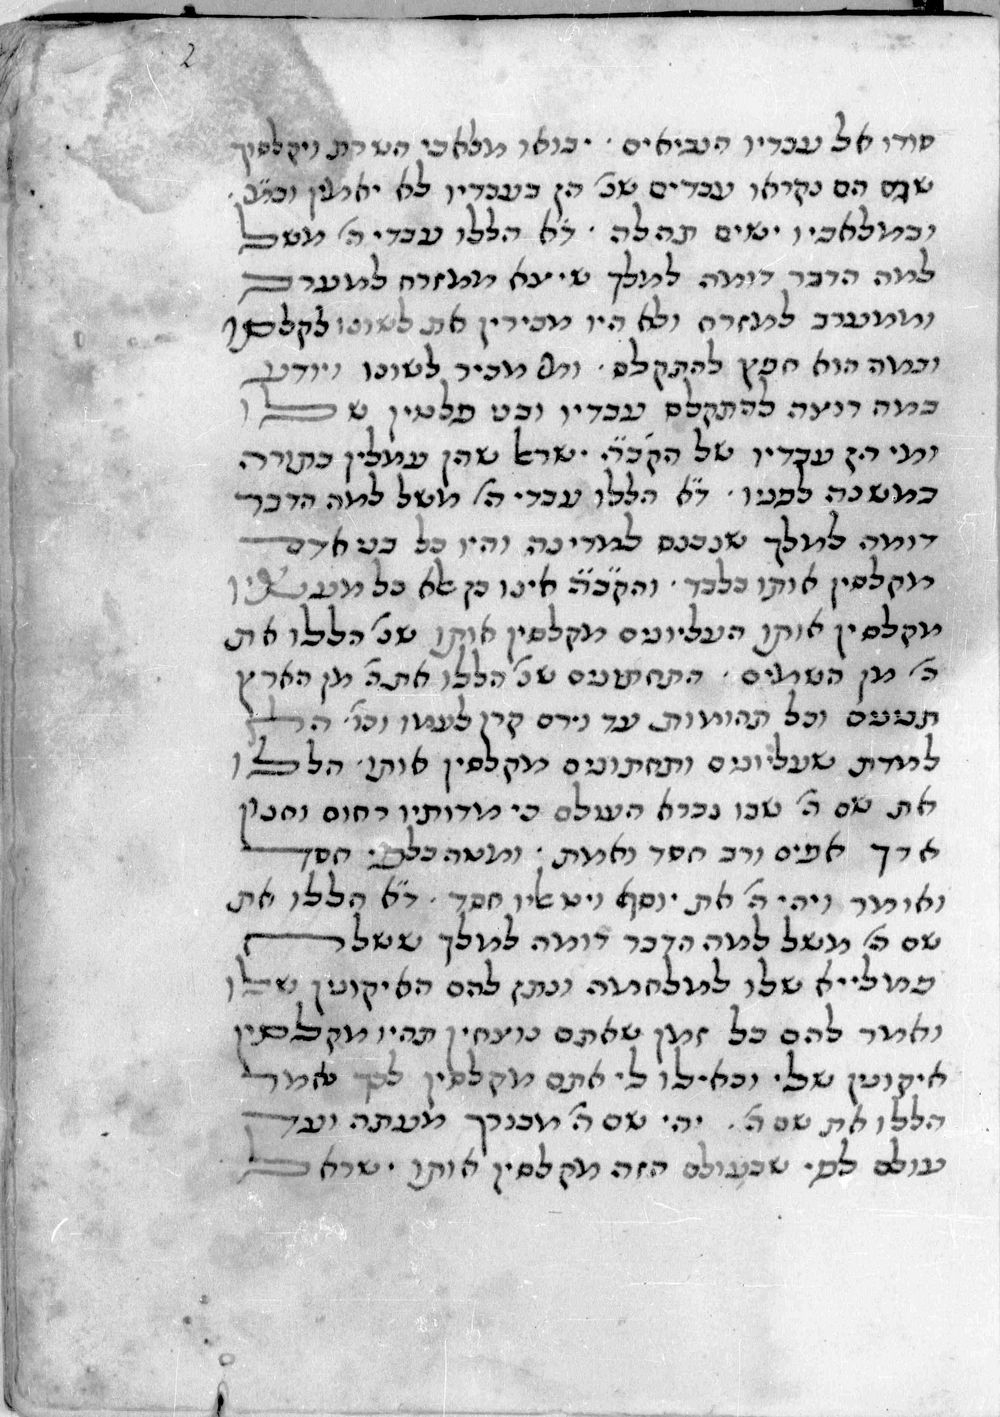 2
סודו אל עבדיו הנביאים · יבואו מלאכי השרת ויקלסוך
שגם הם נקראו עבדים שנ' הן בעבדיו לא יאמין וכת' ·
ובמלאכיו ישים תהלה · ד"א הללו עבדי ה' משל
למה הדבר דומה למלך שיצא ממזרח למערב
וממערב למזרח ולא היו מכירין את לשונו לקלסו
ובמה הוא חפץ להתקלס · ומי מכיר לשונו ויודע
במה רוצה להתקלס עבדיו ובני פלטין שלו
ומי הן עבדיו של הקב"ה ישראל שהן עמלין בתורה
במשנה לפניו · ד"א הללו עבדי ה' משל למה הדבר
דומה למלך שנכנס למדינה והיו כל בני אדם
מקלסין אותו בלבד · והקב"ה אינו כן אלא כל מעשיו
מקלסין אותו העליונים מקלסין אותו שנ' הללו את
ה' מן השמים · התחתונים שנ' הללו את ה' מן הארץ
תנינים וכל תהומות עד וירם קרן לעמו וכו' הרי
למדת שעליונים ותחתונים מקלסין אותו · הללו
את שם ה' שבו נברא העולם כי מדותיו רחום וחנון
ארך אפים ורב חסד ואמת · ומשה בכללם חסד
ואומר ויהי ה' את יוסף ויט אליו חסד · ד"א הללו את
שם ה' משל למה הדבר דומה למלך ששלח
פמלייא שלו למלחמה ונתן להם האיקונין שלו
ואמר להם כל זמן שאתם נוצחין תהיו מקלסין
איקונין שלי וכאילו לי אתם מקלסין לכך אמר
הללו את שם ה' · יהי שם ה' מבורך מעתה ועד
עולם לפי שבעולם הזה מקלסין אותו ישראל